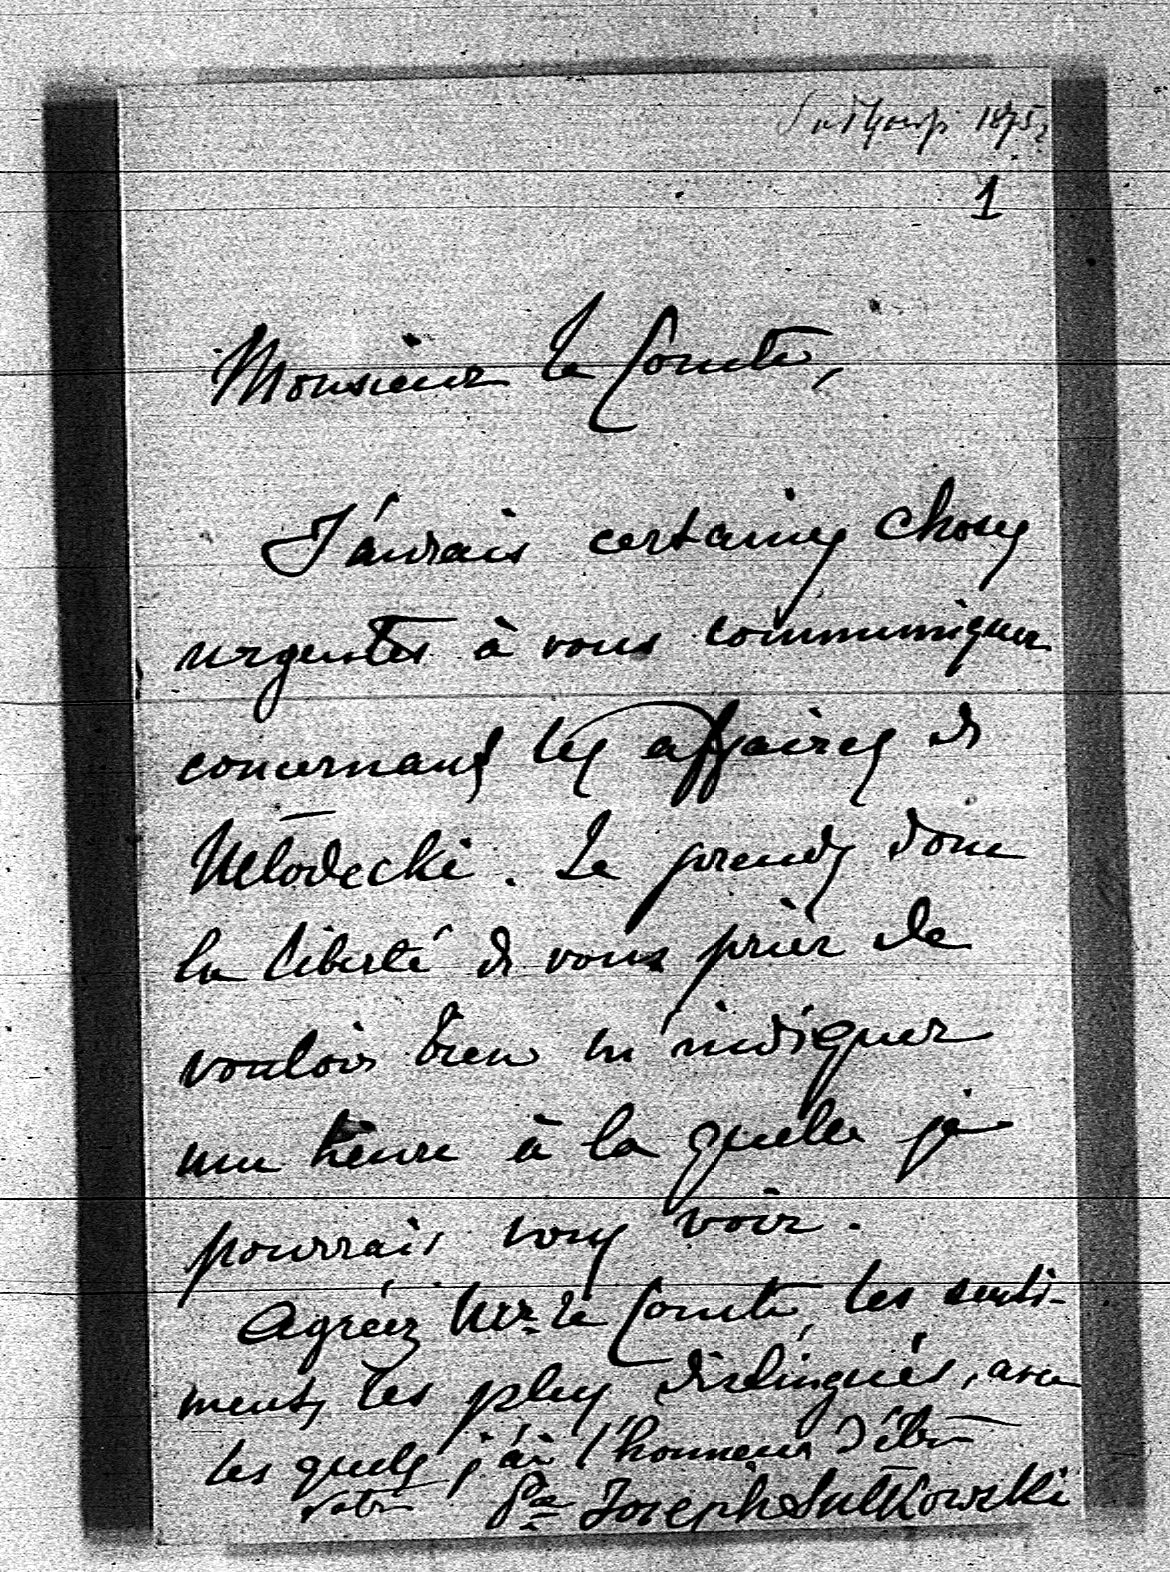 1875?
1
Monsieur le Comte,
J'aurais certaines choses
urgentes à vous communiquer
concernant les affaires de
Młodecki. Je prends donc
la liberté de vous prier de
vouloir bien m'indiquer
une heure à la quelle je
pourrais vous voir.
Agréez Mr le Comte, les senti-
ments les plus distingués, avec
les quels j'ai l'honneur d'être
votre Pce Joseph Sułkowski